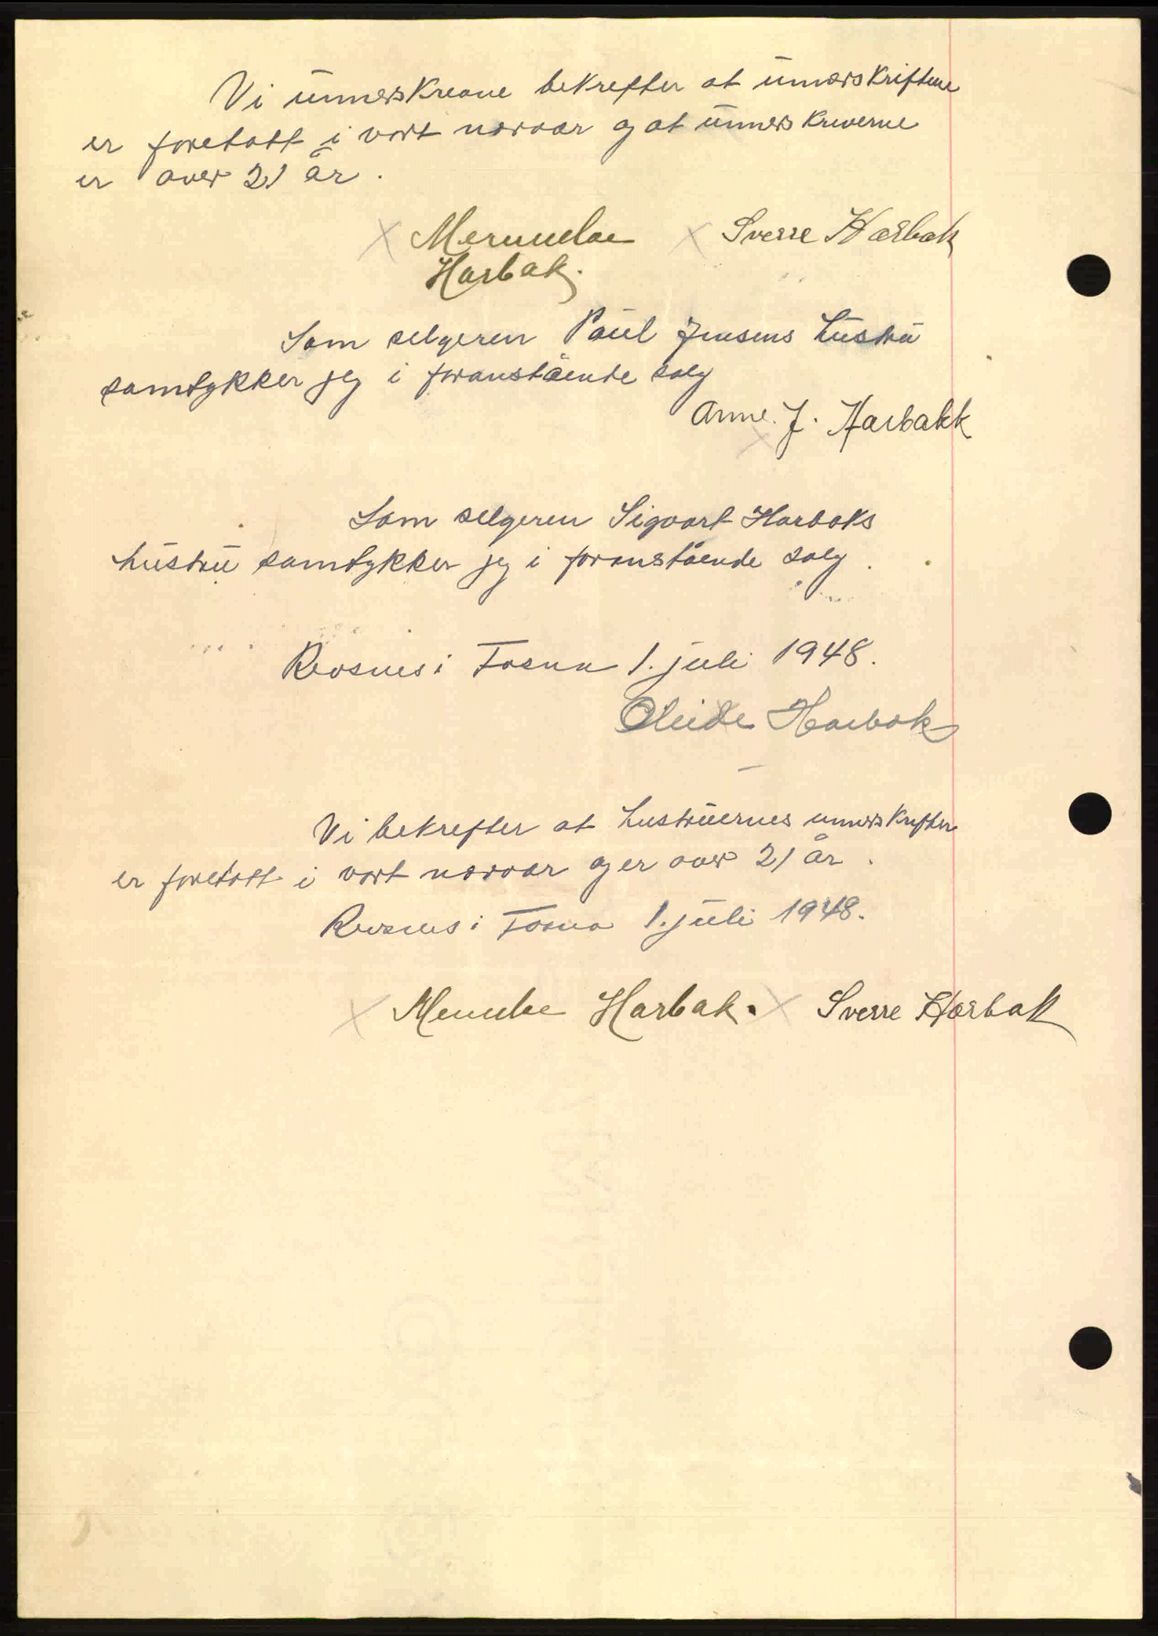 Vi unnerskrevne bekrefter at unnerskriftene
er foretatt i vort nærvær og at unnerskriverne
er over 21 år.
Harbak. Sverre Harbak
Som selgeren Paul Jensens hustru
samtykker jeg i foranstående salg
Anne. J. Harbakk
Som selgeren Sigvart Harbaks
hustru samtykker jeg i foranstående salg.
i Fosna 1. juli 1948.
Harbak
Vi bekrefter at hustruernes unnerskrifter
er foretatt i vort nærvær og er over 21 år.
i Fosna 1. juli 1948.
Harbak. Sverre Harbak